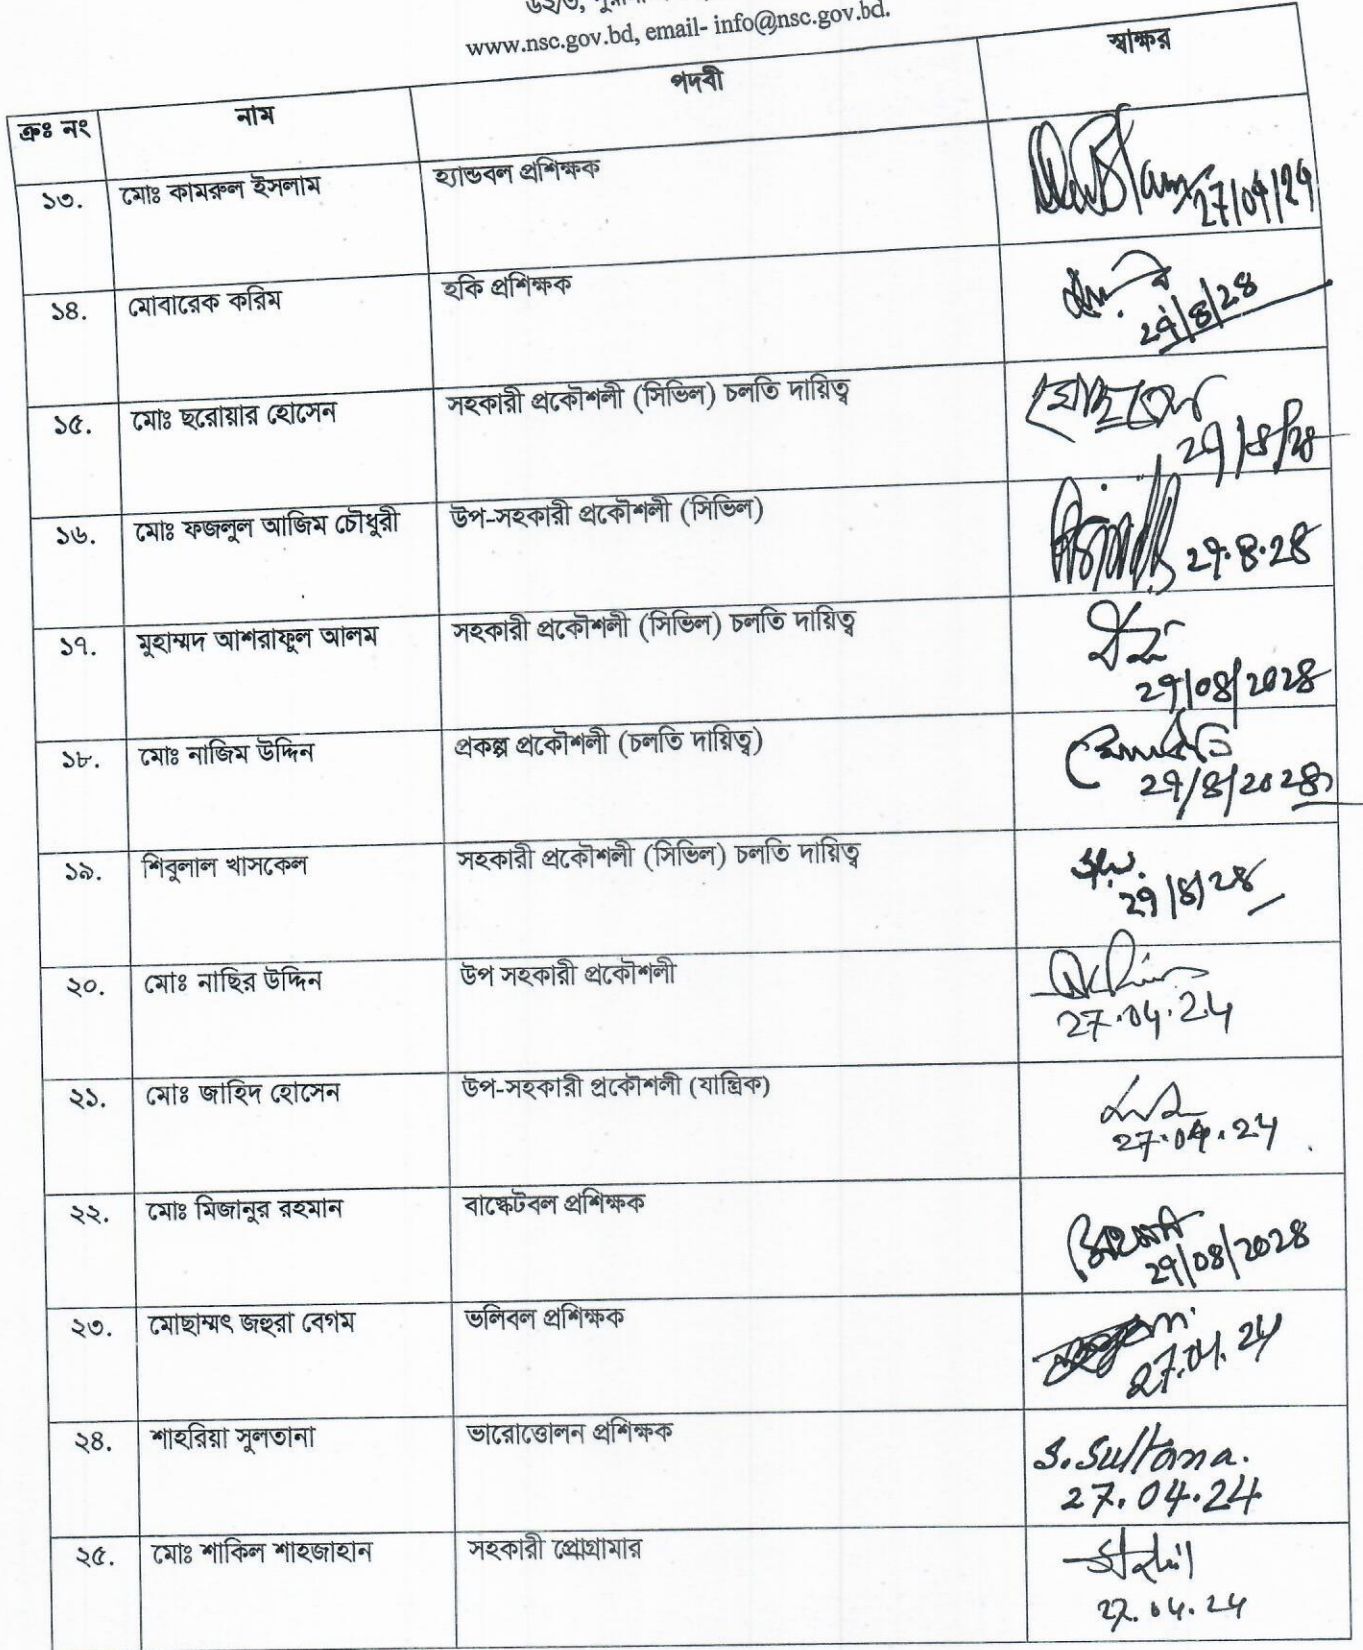 ৬২/৩,
www.nsc.gov.bd, email- info@nsc.gov.bd.
ক্রঃ নং নাম পদবী স্বাক্ষর
১৩. মোঃ কামরুল ইসলাম হ্যান্ডবল প্রশিক্ষক
27/04/24
১৪. মোবারেক করিম হকি প্রশিক্ষক
২৭/৪/২৪
১৫. মোঃ ছরোয়ার হোসেন সহকারী প্রকৌশলী (সিভিল) চলতি দায়িত্ব
২৭/৪/২৪
১৬. মোঃ ফজলুল আজিম চৌধুরী উপ-সহকারী প্রকৌশলী (সিভিল)
২৭.৪.২৪
১৭. মুহাম্মদ আশরাফুল আলম সহকারী প্রকৌশলী (সিভিল) চলতি দায়িত্ব
২৭/০৪/২০২৪
১৮. মোঃ নাজিম উদ্দিন প্রকল্প প্রকৌশলী (চলতি দায়িত্ব)
২৭/৪/২০২৪
১৯. শিবুলাল খাসকেল সহকারী প্রকৌশলী (সিভিল) চলতি দায়িত্ব
২৭/৪/২৪
২০. মোঃ নাছির উদ্দিন উপ সহকারী প্রকৌশলী
27.04.24
২১. মোঃ জাহিদ হোসেন উপ-সহকারী প্রকৌশলী (যান্ত্রিক)
27.04.24
২২. মোঃ মিজানুর রহমান বাস্কেটবল প্রশিক্ষক
২৭/০৪/২০২৪
২৩. মোছাম্মৎ জহুরা বেগম ভলিবল প্রশিক্ষক
27.04.24
২৪. শাহরিয়া সুলতানা ভারোত্তোলন প্রশিক্ষক S. Sultana.
27.04.24
২৫. মোঃ শাকিল শাহজাহান সহকারী প্রোগ্রামার
27.04.24